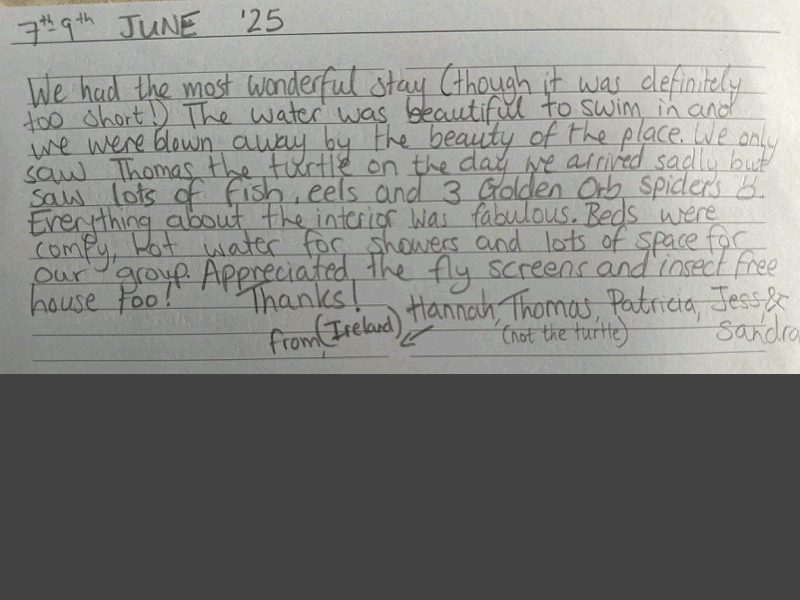 7th-9th JUNE '25
We had the most wonderful stay (though it was definitely
too short!) The water was beautiful to swim in and
we were blown away by the beauty of the place. We only
saw Thomas the turtle on the day we arrived sadly but
saw lots of fish, eels and 3 Golden Orb spiders
Everything about the interior was fabulous. Beds were
comfy, hot water for showers and lots of space for
our group. Appreciated the fly screens and insect free
house too! Thanks! Hannah, Thomas, Patricia, Jess &
from (Ireland) (not the turtle) Sandra